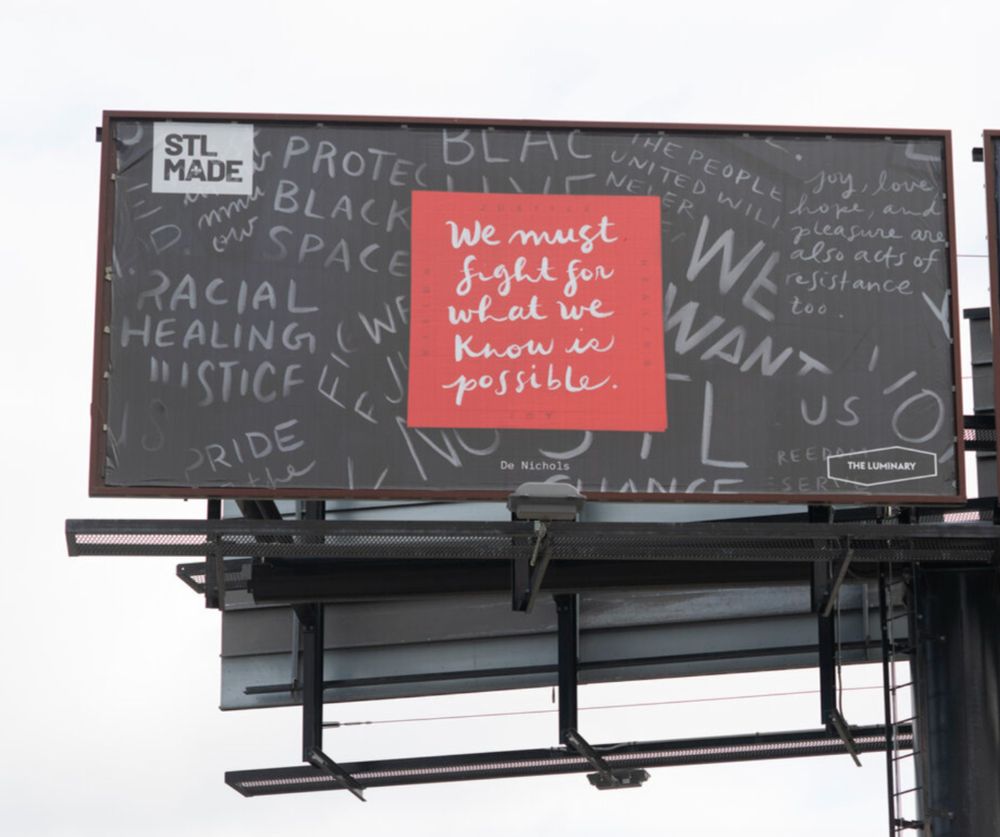 STL
MADE
PROTEC
BLACK
SPACE
RACIAL
HEALING
JUSTICE
PRIDE
the
BLAC
LIVE
THE PEOPLE
UNITED WILL
NEVER
joy, love
hope, and
pleasure are
also acts of
resistance
too.
WE
WANT
US
We must
fight for
what we
Know is
possible.
JOY
De Nichols
NO
STL
CHANCE
REEDOM
SERV
THE LUMINARY